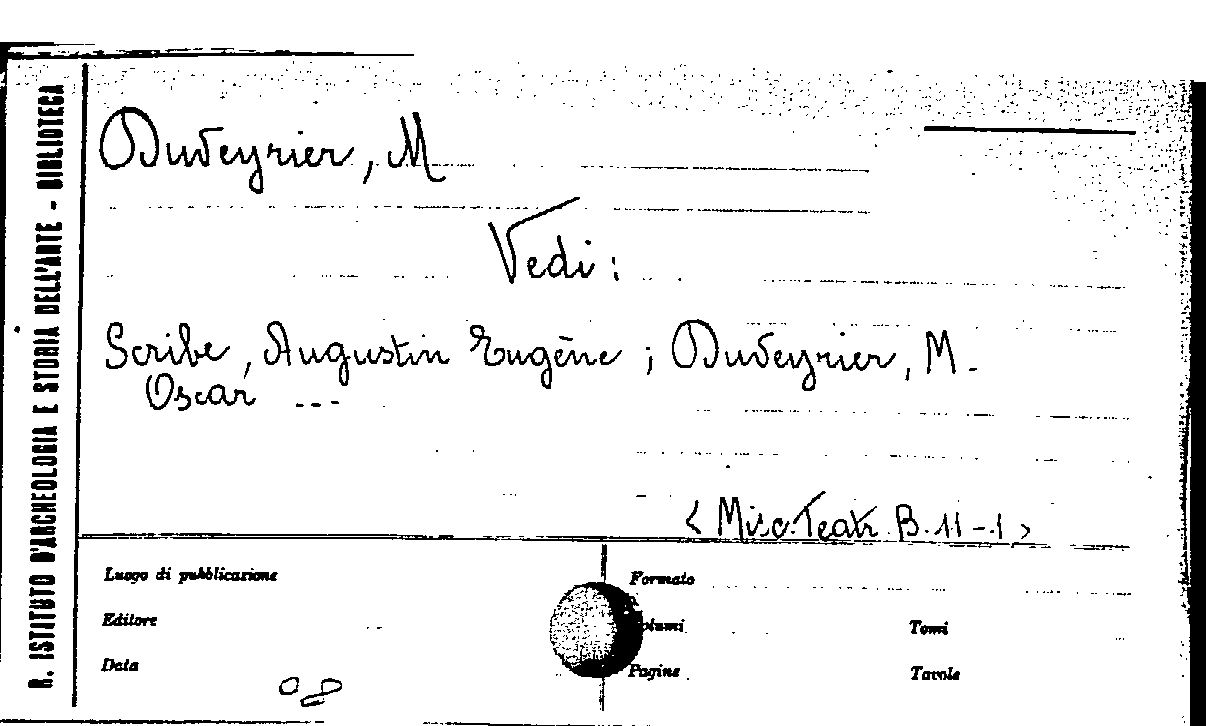 R. ISTITUTO D'ARCHEOLOGIA E STORIA DELL'ARTE - BIBLIOTECA
Duveyrier, M
Vedi:
Scribe, Augustin Eugène; Duveyrier, M.
Oscar ---
<Misc.Teatr. B.11-1>
Luogo di pubblicazione
Formato
Editore
Volumi
Tomi
Data
Pagine
Tavole